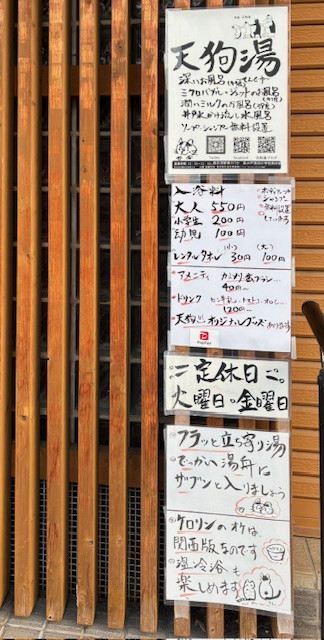 天狗湯
深いお風呂
ミクロバブル・ジェットのお風呂
潤いミルクのお風呂
井戸水かけ流し水風呂
ソープ、シャンプー無料設置
入浴料
大人 550円
小学生 200円
幼児 100円
(小) (大)
レンタルタオル 30円 100円
ボディソープ
シャンプー
無料設置
しています
アメニティ カミソリ、歯ブラシ...
40円〜
ドリンク ビン牛乳、
120円〜
天狗湯オリジナルグッズあります
PayPay
定休日
火曜日。金曜日
フラッと立ち寄り湯
でっかい湯舟に
ザブンと入りましょう
ケロリンのオケは
関西版なのです
温冷浴も
楽しめます